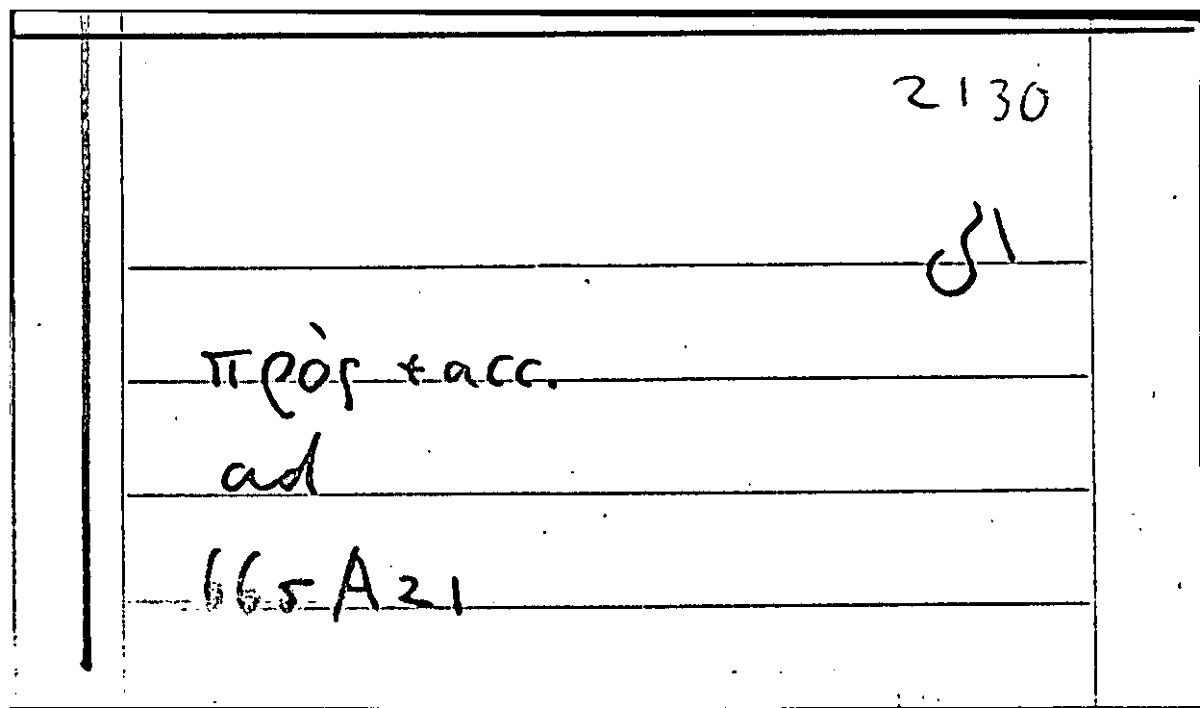 2130
ال
πρὸς + acc.
ad
665A21